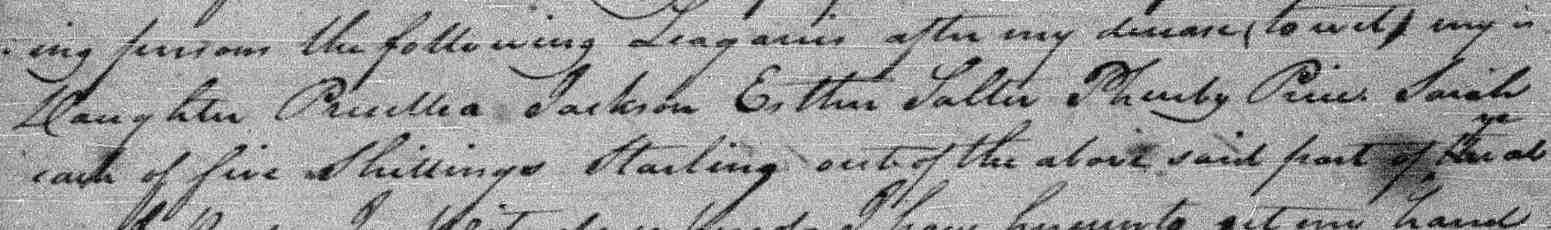 ing persons the following Leagasies after my decease (to wit) my
Daughter Prucillia Jackson Esther Salter Pheuby Price Sarah
each of five Shillings Starling out of the above said part of
I have hereunto set my hand